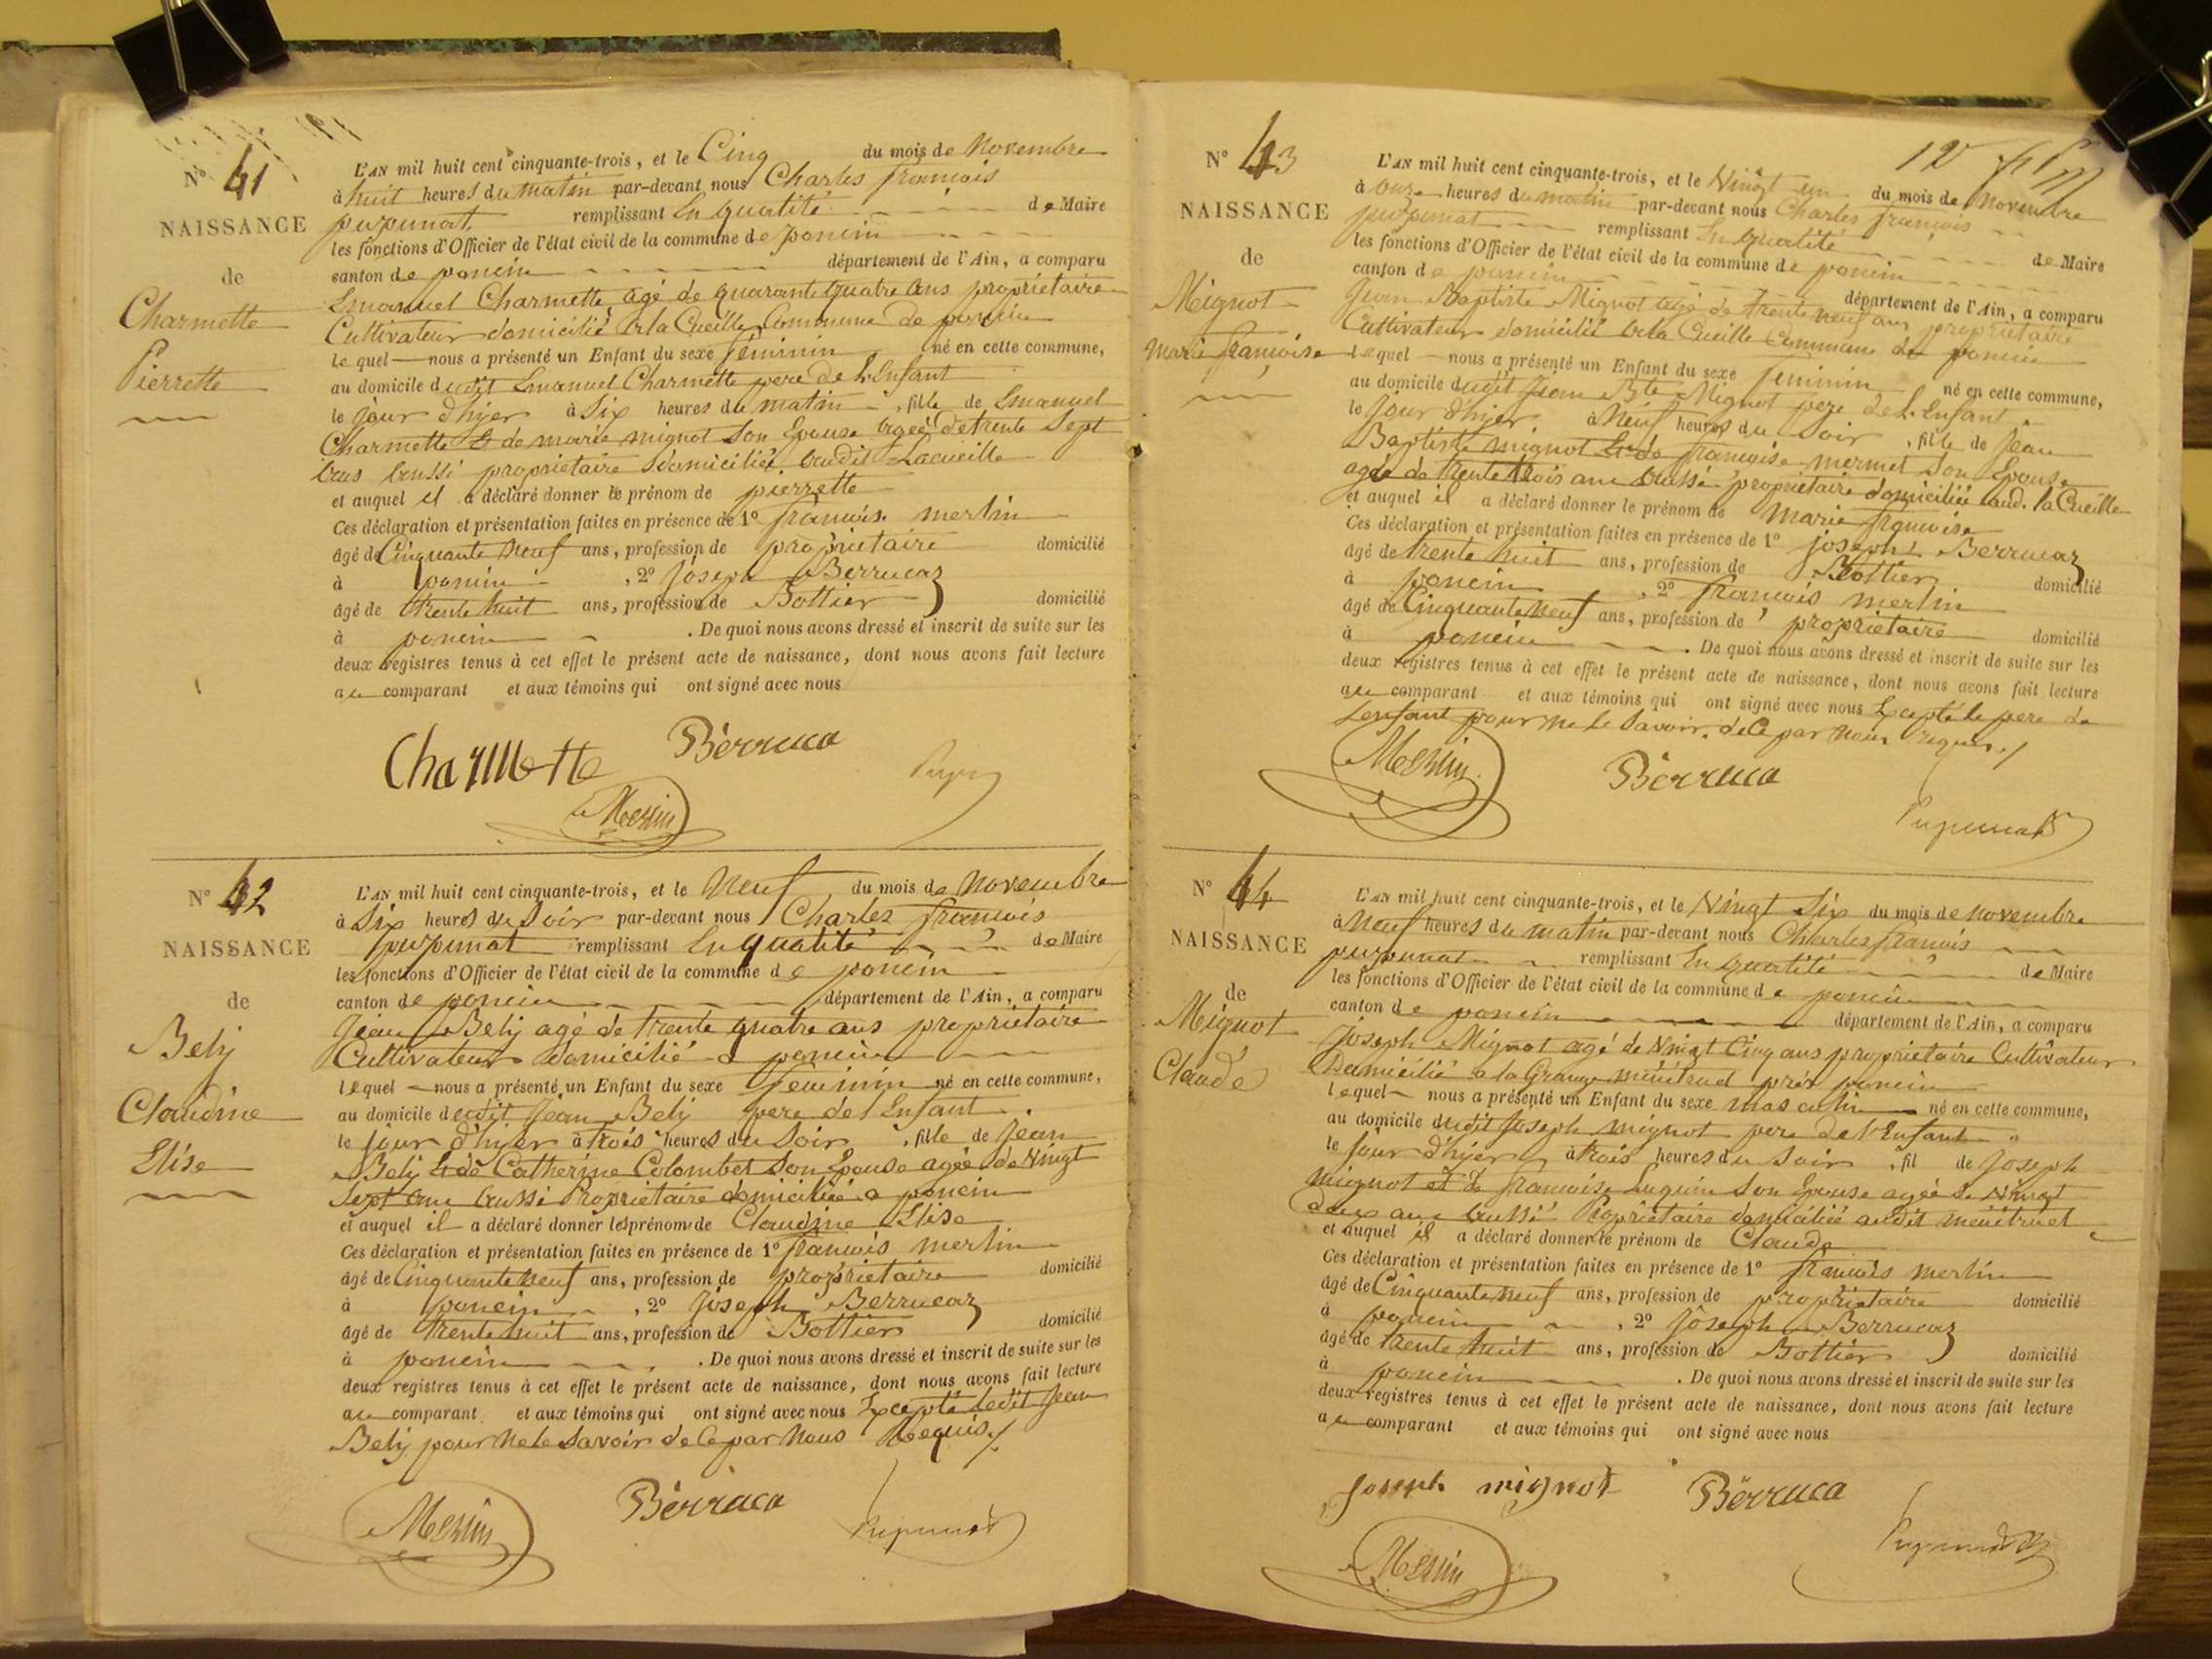 N° 41
NAISSANCE
de
Charmette
Pierrette
L'AN mil huit cent cinquante-trois, et le Cinq du mois de Novembre
à huit heures du matin par-devant nous Charles françois
pupunat remplissant En qualité de Maire
les fonctions d'Officier de l'état civil de la commune de poncin
canton de poncin département de l'Ain, a comparu
Emanuel Charmette, agé de quarante quatre ans propriétaire
Cultivateur domicilié à la Cueille Commune de poncin
lequel nous a présenté un Enfant du sexe féminin né en cette commune,
au domicile dudit Emanuel Charmette pere de l'Enfant
le jour d'hjer à Six heures du matin, fille de Emanuel
Charmette & de marie mignot Son Epouse agée de trente Sept
ans aussi propriétaire domiciliée audit Lacueille
et auquel il a déclaré donner le prénom de pierrette
Ces déclaration et présentation faites en présence de 1° françois merlin
âgé de Cinquante neuf ans, profession de propriétaire domicilié
à poncin, 2° joseph Berrucaz
âgé de trente huit ans, profession de Bottier domicilié
à poncin. De quoi nous avons dressé et inscrit de suite sur les
deux registres tenus à cet effet le présent acte de naissance, dont nous avons fait lecture
au comparant et aux témoins qui ont signé avec nous
Charmette Bérruca
Merlin
N° 42
NAISSANCE
de
Belij
Claudine
Elise
L'AN mil huit cent cinquante-trois, et le Neuf du mois de Novembre
à Six heures du Soir par-devant nous Charles françois
pupunat remplissant En qualité de Maire
les fonctions d'Officier de l'état civil de la commune de poncin
canton de poncin département de l'Ain, a comparu
Jean Belij agé de trente quatre ans propriétaire
Cultivateur domicilié à poncin
lequel nous a présenté un Enfant du sexe féminin né en cette commune,
au domicile dudit Jean Belij pere de l'Enfant
le jour d'hjer à trois heures du Soir, fille de Jean
Belij & de Catherine Colombet Son Epouse agée de Vingt
Sept ans aussi Propriétaire domiciliée a poncin
et auquel il a déclaré donner les prénoms de Claudine Elise
Ces déclaration et présentation faites en présence de 1° françois merlin
âgé de Cinquante neuf ans, profession de propriétaire domicilié
à poncin, 2° joseph Berrucaz
âgé de trente huit ans, profession de Bottier domicilié
à poncin. De quoi nous avons dressé et inscrit de suite sur les
deux registres tenus à cet effet le présent acte de naissance, dont nous avons fait lecture
au comparant et aux témoins qui ont signé avec nous Excepté ledit Jean
Belij pour ne le Savoir de Ce par Nous Requis
Merlin Bérruca Pupunat
N° 43
NAISSANCE
de
Mignot
marie françoise
L'AN mil huit cent cinquante-trois, et le Vingt un du mois de Novembre
à onze heures du matin par-devant nous Charles françois
pupunat remplissant En qualité de Maire
les fonctions d'Officier de l'état civil de la commune de poncin
canton de poncin département de l'Ain, a comparu
Jean Baptiste Mignot agé de trente neuf ans propriétaire
Cultivateur domicilié à la Cueille Commune de poncin
lequel nous a présenté un Enfant du sexe féminin né en cette commune,
au domicile dudit Jean Bte Mignot pere de l'Enfant
le jour d'hjer à Neuf heures du Soir, fille de Jean
Baptiste mignot & de françoise mermet Son Epouse
agée de trente trois ans aussi propriétaire domiciliée aud. la Cueille
et auquel il a déclaré donner le prénom de marie françoise
Ces déclaration et présentation faites en présence de 1° joseph Berrucaz
âgé de trente huit ans, profession de Bottier domicilié
à poncin, 2° françois merlin
âgé de Cinquante neuf ans, profession de propriétaire domicilié
à poncin. De quoi nous avons dressé et inscrit de suite sur les
deux registres tenus à cet effet le présent acte de naissance, dont nous avons fait lecture
au comparant et aux témoins qui ont signé avec nous Excepté le pere de
L'enfant pour ne le Savoir. de Ce par Nous requis
Merlin Bérruca Pupunat
N° 44
NAISSANCE
de
Mignot
Claude
L'AN mil huit cent cinquante-trois, et le Vingt Six du mois de novembre
à Neuf heures du matin par-devant nous Charles françois
pupunat remplissant En qualité de Maire
les fonctions d'Officier de l'état civil de la commune de poncin
canton de poncin département de l'Ain, a comparu
Joseph Mignot agé de Vingt Cinq ans propriétaire Cultivateur
Domicilié a la Grange ménétruel près poncin
lequel nous a présenté un Enfant du sexe masculin né en cette commune,
au domicile dudit Joseph mignot pere de l'Enfant
le jour d'hjer à trois heures du Soir, fil de Joseph
mignot et de françoise Son Epouse agée de Vingt
deux ans aussi Propriétaire domiciliée audit ménétruel
et auquel il a déclaré donner le prénom de Claude
Ces déclaration et présentation faites en présence de 1° françois merlin
âgé de Cinquante neuf ans, profession de propriétaire domicilié
à poncin, 2° Joseph Berrucaz
âgé de trente huit ans, profession de Bottier domicilié
à poncin. De quoi nous avons dressé et inscrit de suite sur les
deux registres tenus à cet effet le présent acte de naissance, dont nous avons fait lecture
au comparant et aux témoins qui ont signé avec nous
Joseph mignot Bérruca
Merlin Pupunat